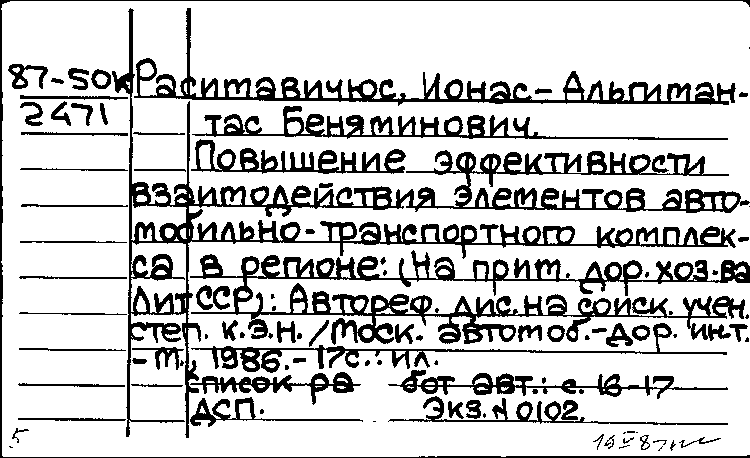 87-50к Раситавичюс, Ионас-Альгиман-
2471 тас Беняминович.
Повышение эффективности
взаимодействия элементов авто-
мобильно-транспортного комплек-
са в регионе: (На прим. дор. хоз-ва
ЛитССР): Автореф. дис. на соиск. учен.
степ. к.э.н. / Моск. автомоб.-дор. ин-т.
- М., 1986. - 17с.: ил.
Список ра бот авт.: с. 16-17
ДСП. Экз. N 0102.
5